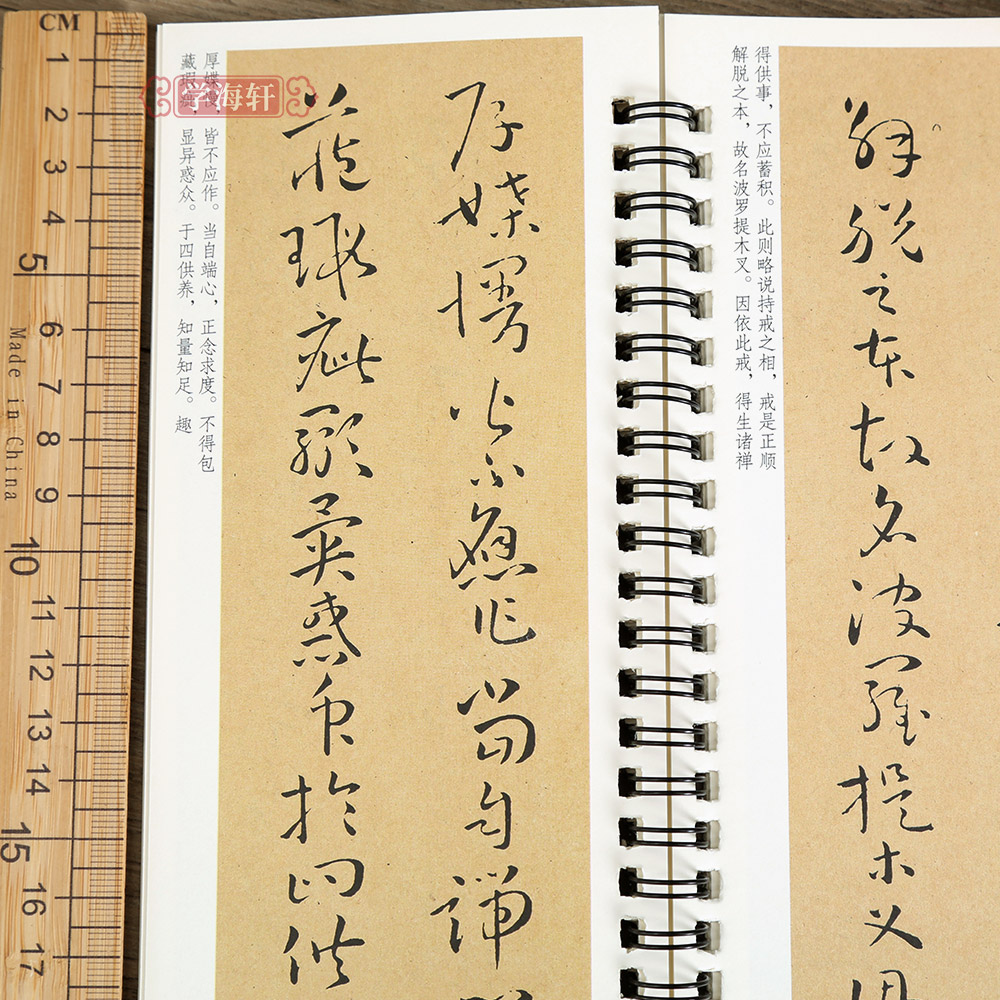 CM
1
2
3
4
5
6
7
8
9
10
11
12
13
14
15
16
17
Made in China
学海轩
厚媟慢，皆不应作。当自端心，正念求度。不得包
藏瑕疵，显异惑众。于四供养，知量知足。趣
厚媟慢皆不應作當自端
藏瑕疵顯異惑衆於四供
得供事，不应蓄积。此则略说持戒之相，戒是正顺
解脱之本，故名波罗提木叉。因依此戒，得生诸禅
解脱之本故名波羅提木叉因